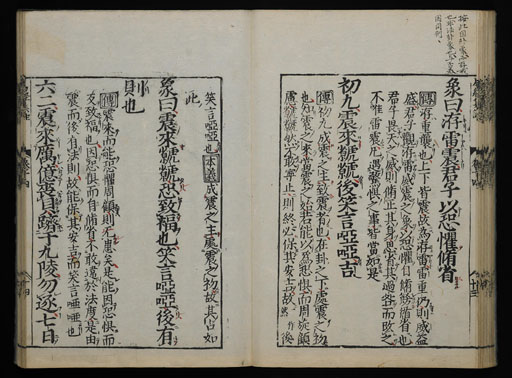 象曰洊雷震君子以恐懼脩省
傳洊重襲也上下皆震故為洊雷雷重仍則威益
盛君子觀洊雷威震之象以恐懼自脩飭循省也
君子畏天之威則脩正其身思省其過咎而改之
不唯雷震凡遇驚懼之事皆當如是
初九震來虩虩後笑言啞啞吉
傳初九成震之主致震者也在卦之下處震之初
也知震之來當震之始若能以為恐懼而周旋顧
慮虩虩然不敢寧止則終必保其安吉故後
笑言啞啞也本義成震之主處震之初故其占如
此
象曰震來虩虩恐致福也笑言啞啞後有
則也
傳震來而能恐懼周顧則无患矣是能因恐懼而
反致福也因恐懼而自脩省不敢違於法度是由
震而後有法則故能保其安吉而笑言啞啞也
六二震來厲億喪貝躋于九陵勿逐七日